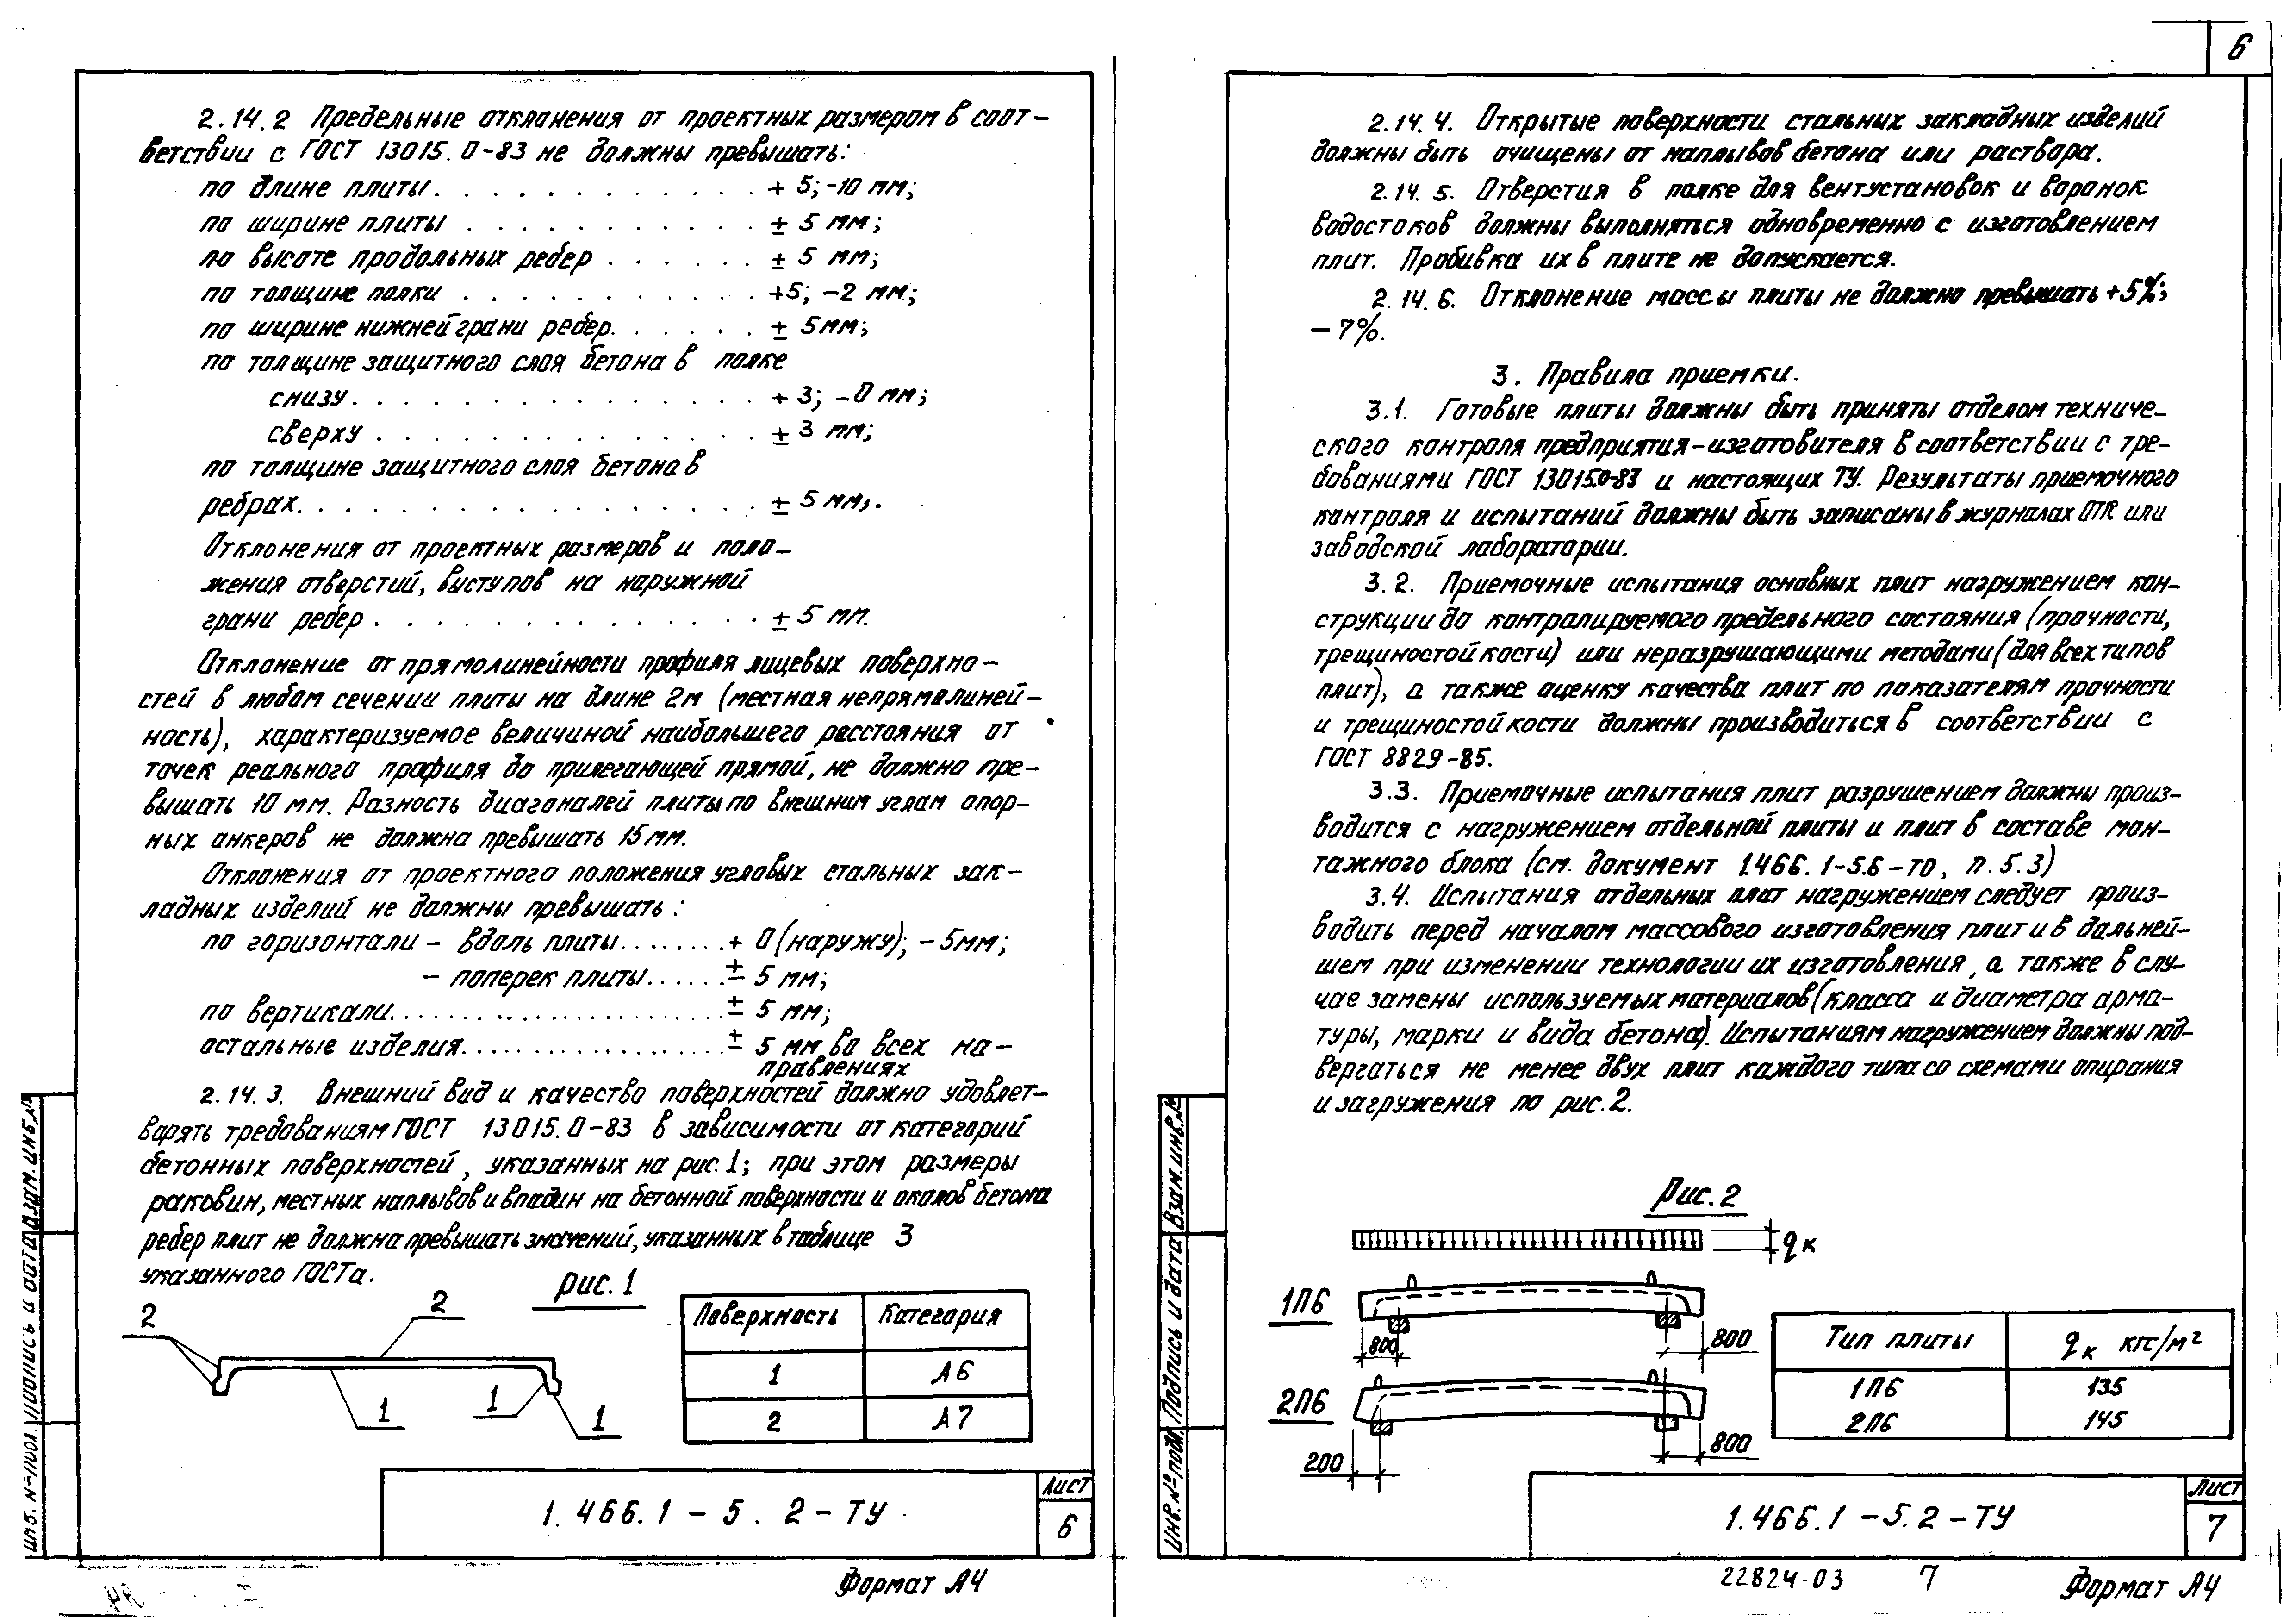 2.14.2 Предельные отклонения от проектных размером в соот-
ветствии с ГОСТ 13015.0-83 не должны превышать:
по длине плиты. . . . . . . . . . . . . + 5; -10 мм;
по ширине плиты . . . . . . . . . . . . ± 5 мм;
по высоте продольных ребер . . . . . . ± 5 мм;
по толщине полки . . . . . . . . . . . +5; -2 мм;
по ширине нижней грани ребер. . . . . . ± 5мм;
по толщине защитного слоя бетона в полке
снизу. . . . . . . . . . . . . . . . + 3; -0 мм;
сверху . . . . . . . . . . . . . . . ± 3 мм;
по толщине защитного слоя бетона в
ребрах. . . . . . . . . . . . . . . . . ± 5 мм;.
Отклонения от проектных размеров и поло-
жения отверстий, выступов на наружной
грани ребер . . . . . . . . . . . . . . ± 5 мм.
Отклонение от прямолинейности профиля лицевых поверхно-
стей в любом сечении плиты на длине 2м (местная непрямолиней-
ность), характеризуемое величиной наибольшего расстояния от
точек реального профиля до прилегающей прямой, не должно пре-
вышать 10 мм. Разность диагоналей плиты по внешним углам опор-
ных анкеров не должна превышать 15мм.
Отклонения от проектного положения угловых стальных зак-
ладных изделий не должны превышать:
по горизонтали - вдоль плиты........+ 0 (наружу); - 5мм;
- поперек плиты......± 5 мм;
по вертикали........................± 5 мм;
остальные изделия...................± 5 мм во всех на-
правлениях
2.14.3. Внешний вид и качество поверхностей должно удовлет-
варять требованиям ГОСТ 13015.0-83 в зависимости от категорий
бетонных поверхностей, указанных на рис.1; при этом размеры
раковин, местных наплывов и впадин на бетонной поверхности и околов бетона
ребер плит не должна превышать значений, указанных в таблице 3
указанного ГОСТа.
рис.1
2
2
1
1
1
Поверхность Категория
1 А6
2 А7
1.466.1-5.2-ТУ
Лист
6
Формат А4
6
2.14.4. Открытые поверхности стальных закладных изделий
должны быть очищены от наплывов бетона или раствора.
2.14.5. Отверстия в полке для вентустановок и воронок
водостоков должны выполняться одновременно с изготовлением
плит. Пробивка их в плите не допускается.
2.14.6. Отклонение массы плиты не должно превышать +5%;
-7%.
3. Правила приемки.
3.1. Готовые плиты должны быть приняты отделом техниче-
ского контроля предприятия-изготовителя в соответствии с тре-
бованиями ГОСТ 13015.0-83 и настоящих ТУ. Результаты приемочного
контроля и испытаний должны быть записаны в журналах ОТК или
заводской лаборатории.
3.2. Приемочные испытания основных плит нагружением кон-
струкции до контролируемого предельного состояния (прочности,
трещиностойкости) или неразрушающими методами (для всех типов
плит), а также оценку качества плит по показателям прочности
и трещиностойкости должны производиться в соответствии с
ГОСТ 8829-85.
3.3. Приемочные испытания плит разрушением должны произ-
водится с нагружением отдельной плиты и плит в составе мон-
тажного блока (см. документ 1.466.1-5.6-ТО, п.5.3)
3.4. Испытания отдельных плат нагружением следует произ-
водить перед началом массового изготовления плит и в дальней-
шем при изменении технологии их изготовления, а также в слу-
чае замены используемых материалов (класса и диаметра арма-
туры, марки и вида бетона). Испытаниям нагружением должны под-
вергаться не менее двух плит каждого типа со схемами опирания
и загружения по рис.2.
Рис.2
qк
1П6
800
800
2П6
200
800
Тип плиты qк кгс/м²
1П6 135
2П6 145
1.466.1-5.2-ТУ
Лист
7
22824-03 7 Формат А4
Инв.№подл. Подпись и дата Взам.инв.№